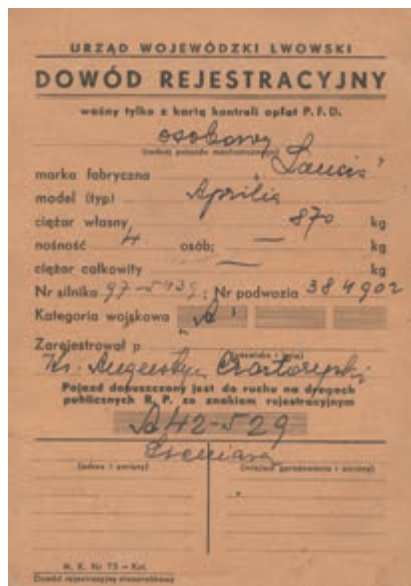 URZĄD WOJEWÓDZKI LWOWSKI
DOWÓD REJESTRACYJNY
ważny tylko z kartą kontroli opłat P.F.D.
osobowy
(rodzaj pojazdu mechanicznego)
marka fabryczna „Lancia”
model (typ) Aprilia
ciężar własny 870 kg
nośność 4 osób; — kg
ciężar całkowity — kg
Nr silnika 97-5439; Nr podwozia 384902
Kategoria wojskowa „A”
Zarejestrował p.
(nazwisko i imię)
Ks. Augustyn Czartoryski
Pojazd dopuszczony jest do ruchu na drogach
publicznych R. P. ze znakiem rejestracyjnym
A42-529
Sieniawa
(adres i zmiany) (miejsce garażowania i zmiany)
M. K. Nr 75 — Kat.
Dowód rejestracyjny